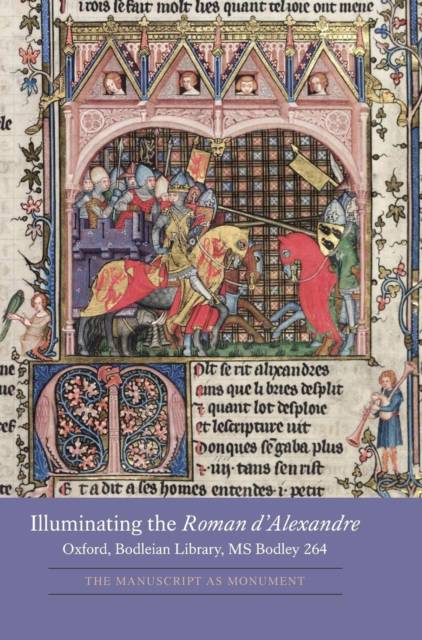 irois se fait molt lies quant
Molt se rit alixandres
ains que li bries desploit
quant lot desploie
et lescripture uit
Donques se gaba plus
E t a dit a ses homes entendes .i. petit
Illuminating the Roman d'Alexandre
Oxford, Bodleian Library, MS Bodley 264
THE MANUSCRIPT AS MONUMENT